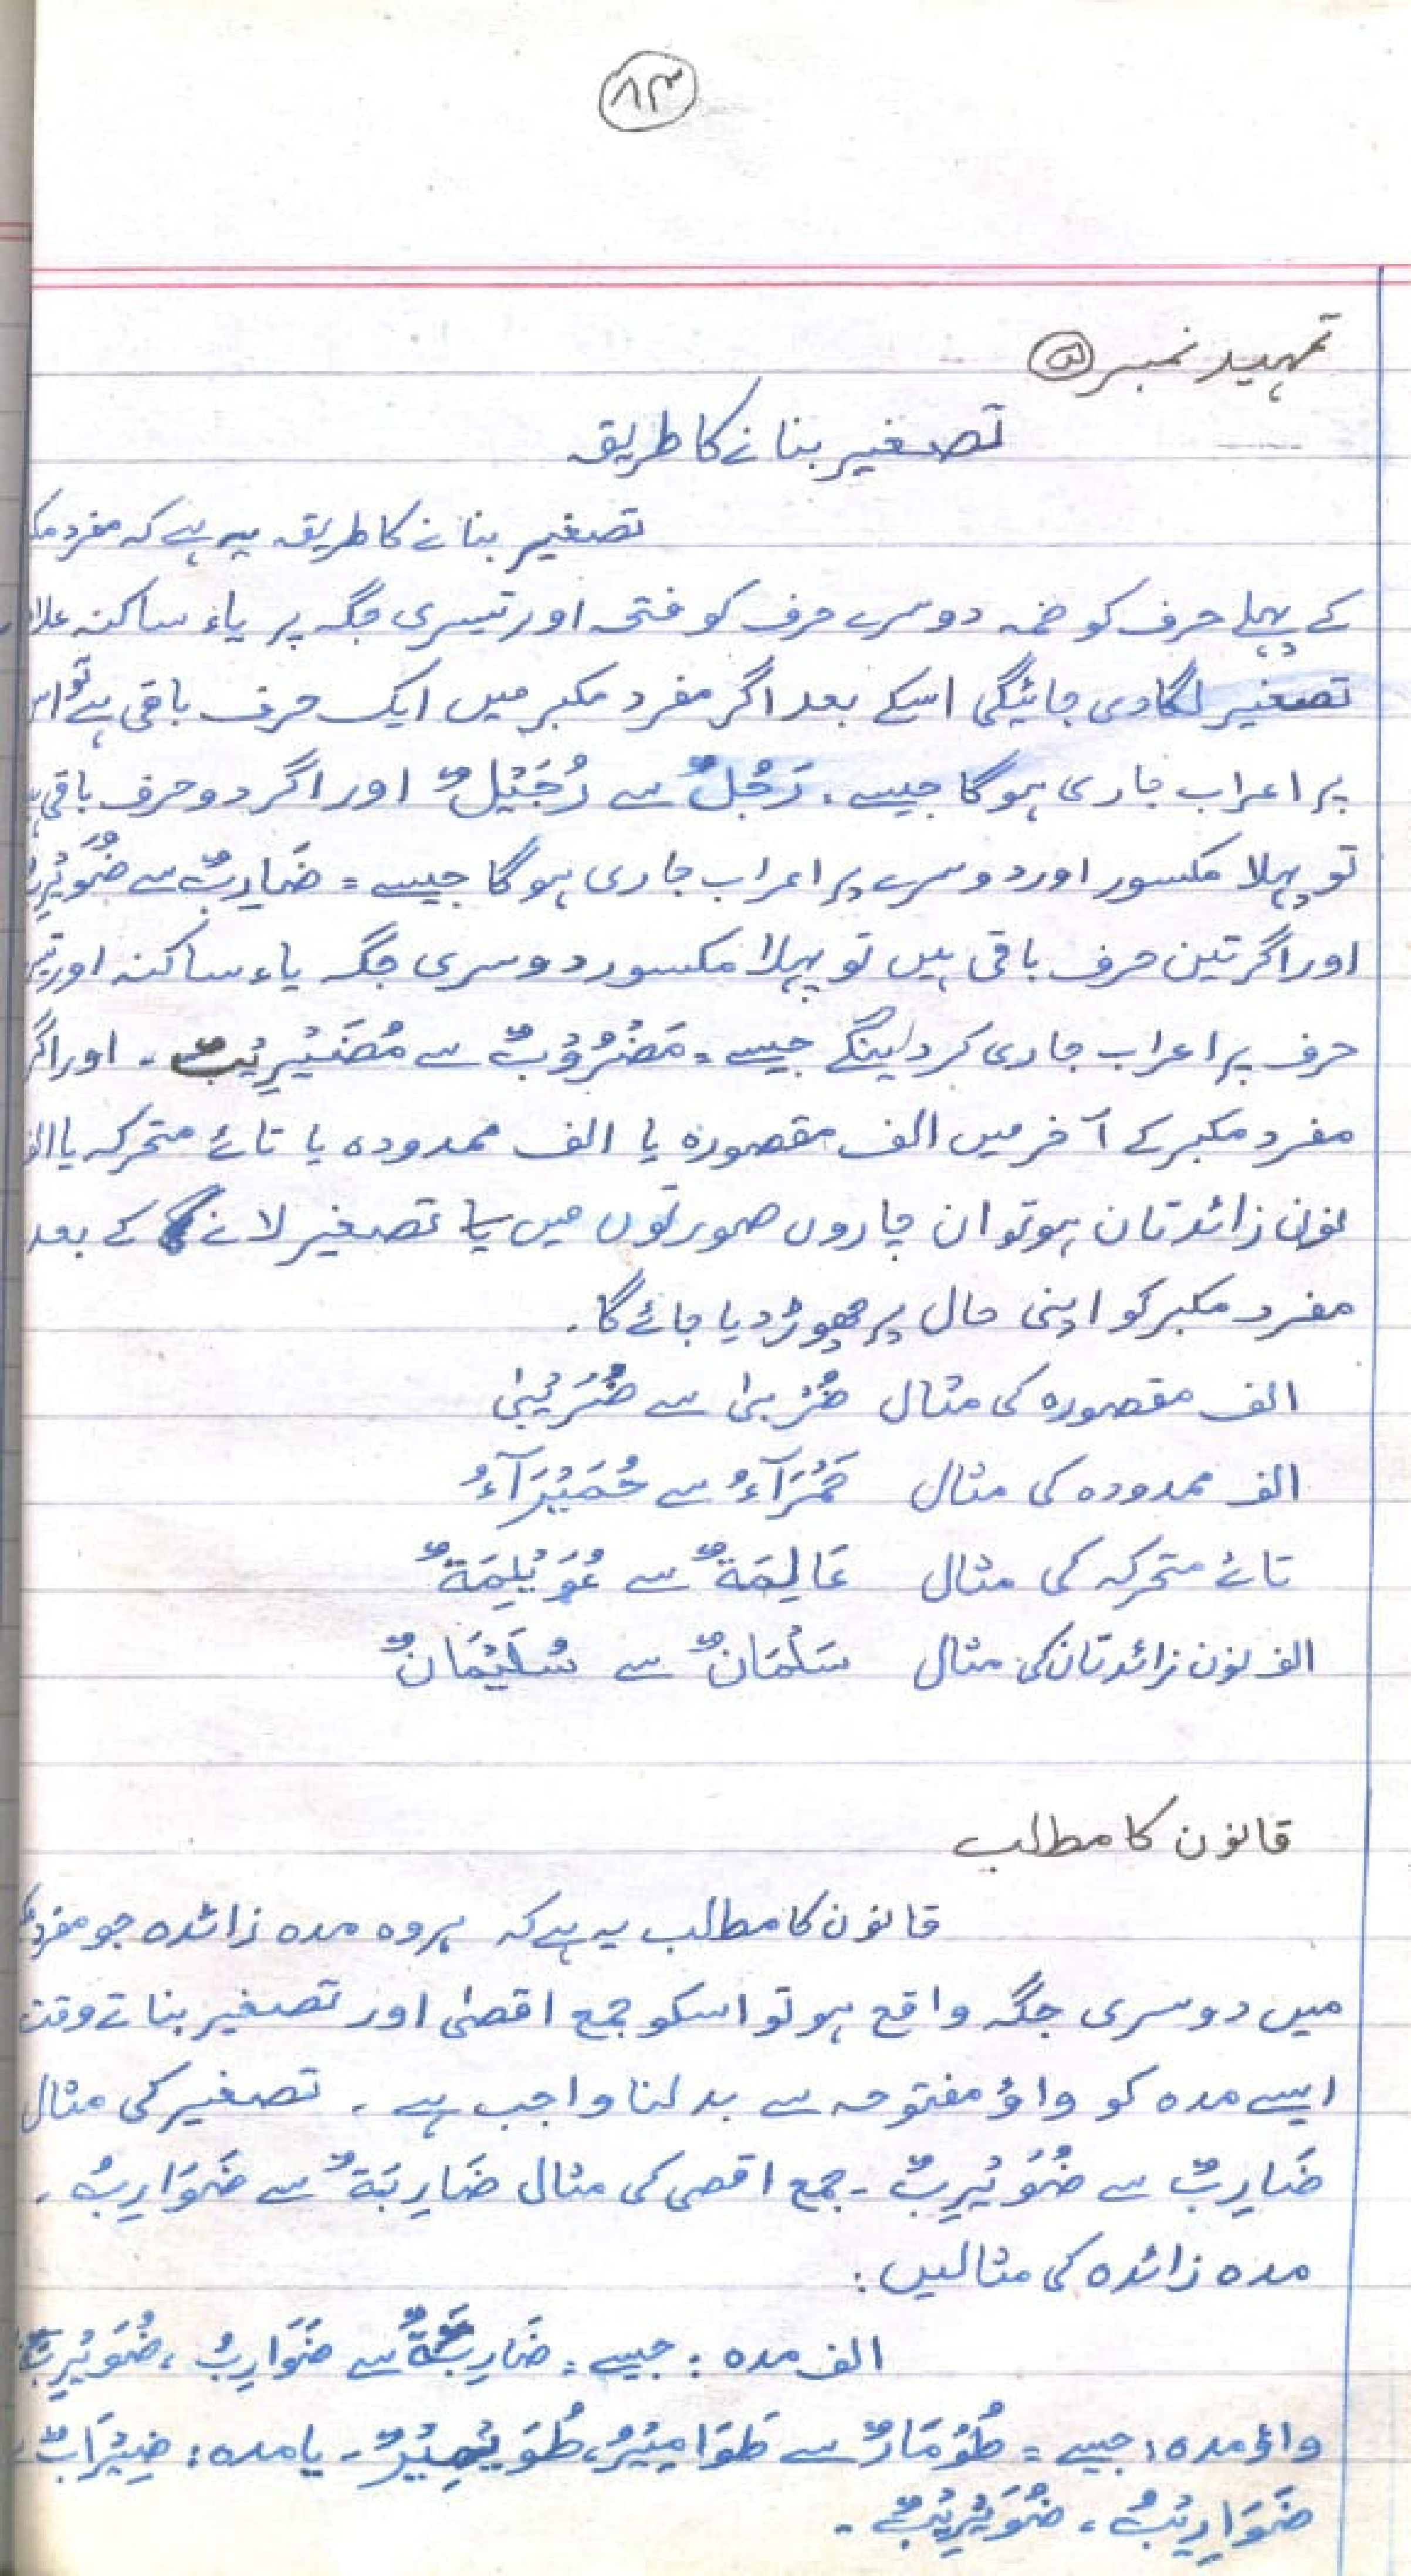 ۸۳
تمہید نمبر ۵
تصغیر بنانے کا طریقہ
تصغیر بنانے کا طریقہ یہ ہے کہ مفرد
کے پہلے حرف کو ضمہ دوسرے حرف کو فتحہ اور تیسری جگہ پر یاء ساکنہ
تصغیر لگادی جائیگی اسکے بعد اگر مفرد مکبر میں ایک حرف باقی ہے تو
پر اعراب جاری ہوگا جیسے، رَجُلٌ سے رُجَیْلٌ اور اگر دو حرف باقی
تو پہلا مکسور اور دوسرے پر اعراب جاری ہوگا جیسے = ضَارِبٌ سے ضُوَیْرِبٌ
اور اگر تین حرف باقی ہیں تو پہلا مکسور دوسری جگہ یاء ساکنہ اور
حرف پر اعراب جاری کردینگے جیسے = مَضْرُوْبٌ سے مُضَیْرِیْبٌ ۔ اور اگر
مفرد مکبر کے آخر میں الف مقصورہ یا الف ممدودہ یا تائے متحرکہ یا
نون زائدتان ہو تو ان چاروں صورتوں میں یا تصغیر لانے کے بعد
مفرد مکبر کو اپنی حال پر چھوڑ دیا جائے گا ۔
الف مقصورہ کی مثال ضُرْبٰی سے ضُرَیْبٰی
الف ممدودہ کی مثال حَمْرَآءُ سے حُمَیْرَآءُ
تائے متحرکہ کی مثال عَالِمَةٌ سے عُوَیْلِمَةٌ
الف نون زائدتان کی مثال سَلْمَانٌ سے سُلَیْمَانٌ
قانون کا مطلب
قانون کا مطلب یہ ہے کہ ہر وہ مدہ زائدہ جو مفرد
میں دوسری جگہ واقع ہو تو اسکو جمع اقصیٰ اور تصغیر بناتے وقت
ایسے مدہ کو واؤ مفتوحہ سے بدلنا واجب ہے ۔ تصغیر کی مثال
ضَارِبٌ سے ضُوَیْرِبٌ ۔ جمع اقصی کی مثال ضَارِبَةٌ سے ضَوَارِبُ ۔
مدہ زائدہ کی مثالیں :
الف مدہ : جیسے = ضَارِبَةٌ سے ضَوَارِبُ ، ضُوَیْرِبَةٌ
واؤ مدہ : جیسے = طُوْمَارٌ سے طَوَامِیْرُ ، طُوَیْمِیْرٌ ۔ یا مدہ : ضِیْرَابٌ
ضَوَارِیْبُ ، ضُوَیْرِیْبٌ ۔